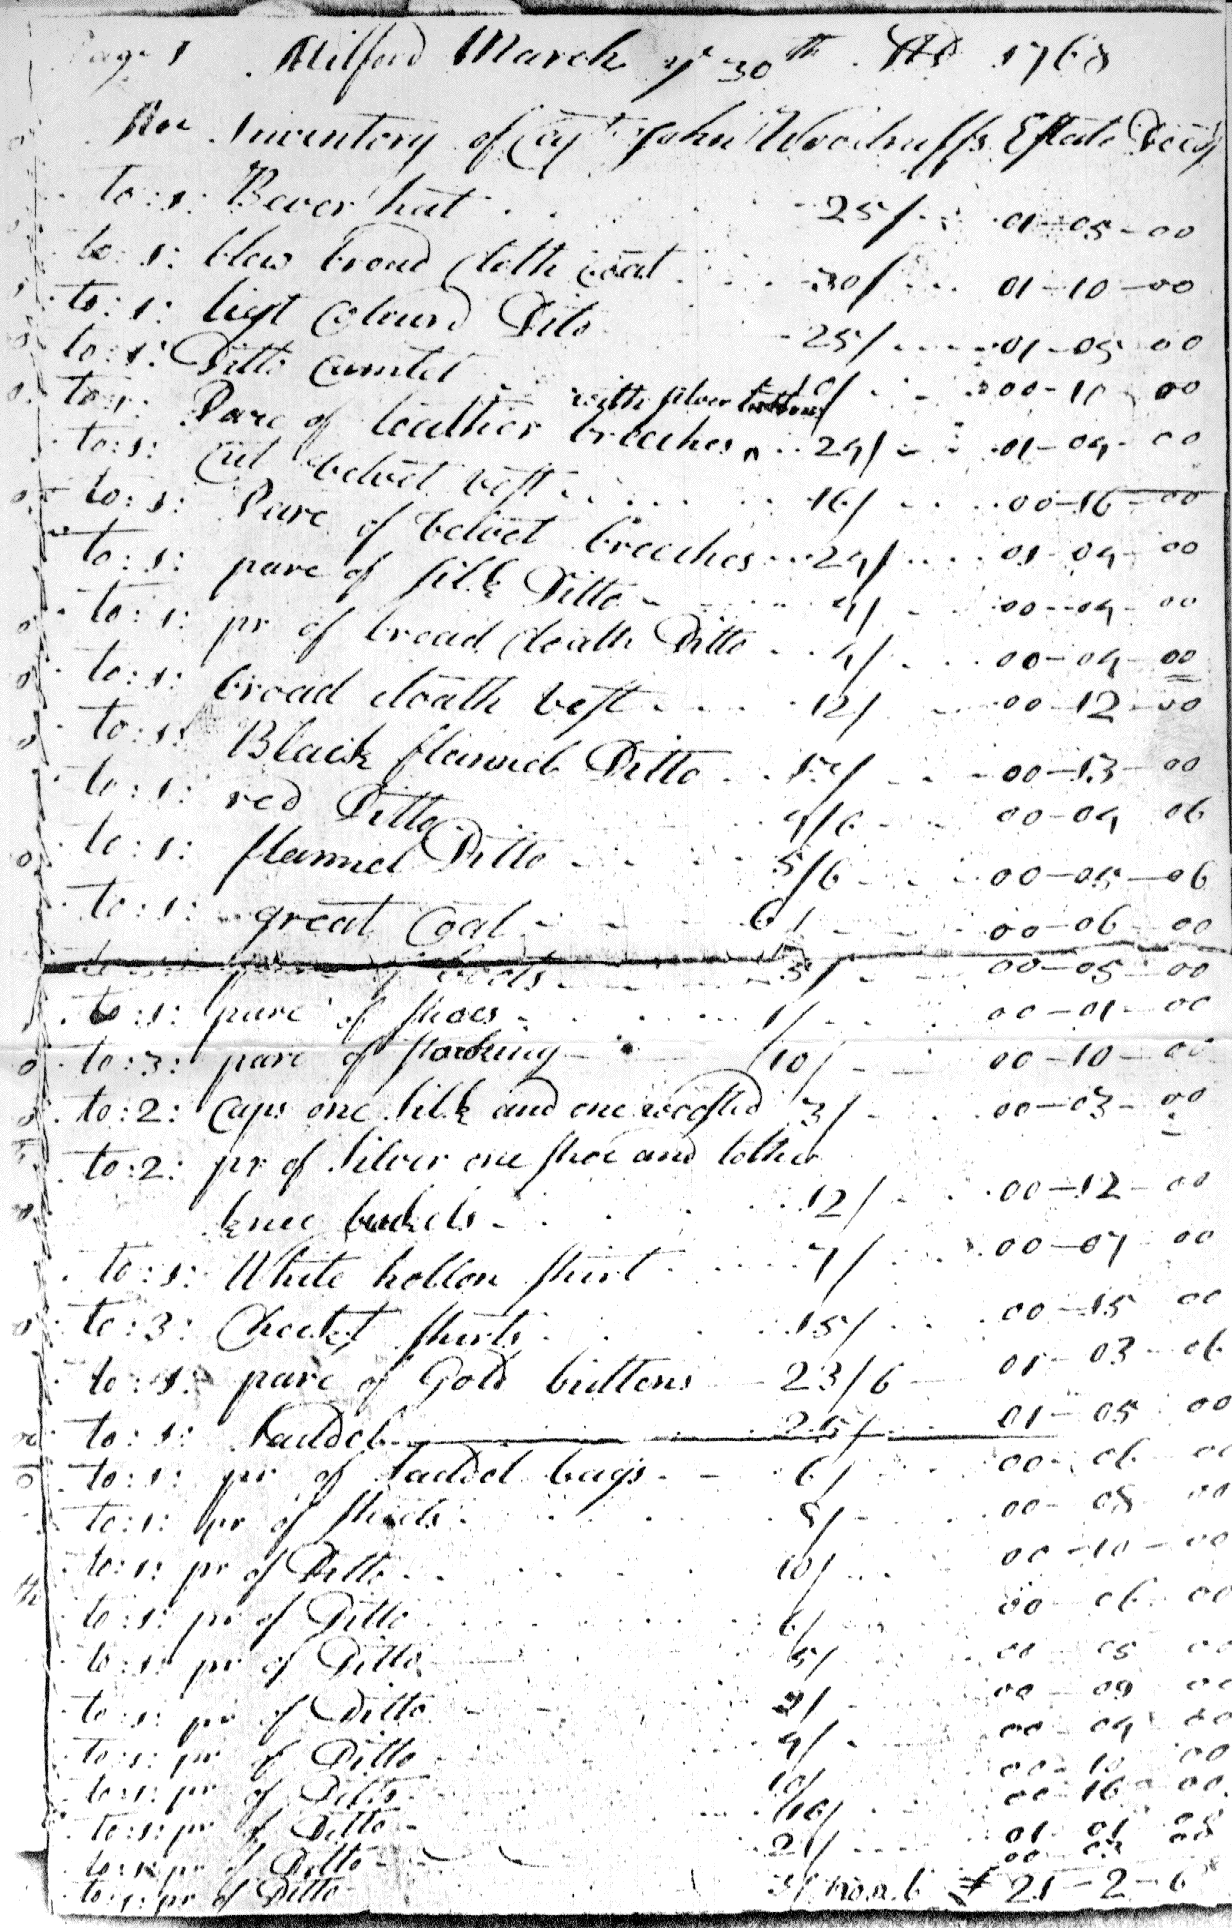 Page 1 Milford March ye 30th AD 1768
Inventory of Capt John Woodruffs Estate Decd
to: 1: Bever hat 25/ 01-05-00
to: 1: blew broad cloth coat 30/ 01-10-00
to: 1: ligt Coloured Dito 25/ 01-05-00
to: 1: Ditto camlet 10/ 00-10-00
with silver buttons
to: 1: Pare of leather breeches ^ 24/ 01-04-00
to: 1: Cut velvet vest 16/ 00-16-00
to: 1: Pare of velvet breeches 24/ 01-04-00
to: 1: pare of silk Ditto 4/ 00-04-00
to: 1: pr of broad cloath Ditto 4/ 00-04-00
to: 1: broad cloath vest 12/ 00-12-00
to: 1: Black flannel Ditto 13/ 00-13-00
to: 1: red Ditto 4/6 00-04-06
to: 1: flannel Ditto 5/6 00-05-06
to: 1: great Coat 6/ 00-06-00
of boots 5/ 00-05-00
to: 1: pare of shoes 1/ 00-01-00
to: 3: pare of stocking 10/ 00-10-00
to: 2: caps one silk and one woosted 3/ 00-03-00
to: 2: pr of silver one shoe and tother
knee buckels 12/ 00-12-00
to: 1: White hollon shirt 7/ 00-07-00
to: 3: Checket shirts 15/ 00-15-00
to: 1: pare of Gold buttons 23/6 01-03-06
to: 1: saddel 25/ 01-05-00
to: 1: pr of saddel bags 6/ 00-06-00
to: 1: pr of sheets 8/ 00-08-00
to: 1: pr of Ditto 10/ 00-10-00
to: 1: pr of Ditto 6/ 00-06-00
to: 1: pr of Ditto 5/ 00 05 00
to: 1: pr of Ditto 9/ 00-09 00
to: 1: pr of Ditto 4/ 00-04 00
to: 1: pr of Ditto 10/ 00-10 00
to: 1: pr of Ditto 16/ 00-16 00
to: 1: pr of Ditto 21/ 01 01 00
to: 1: pr of Ditto 3/ 00 03 00
£ 21-2-6